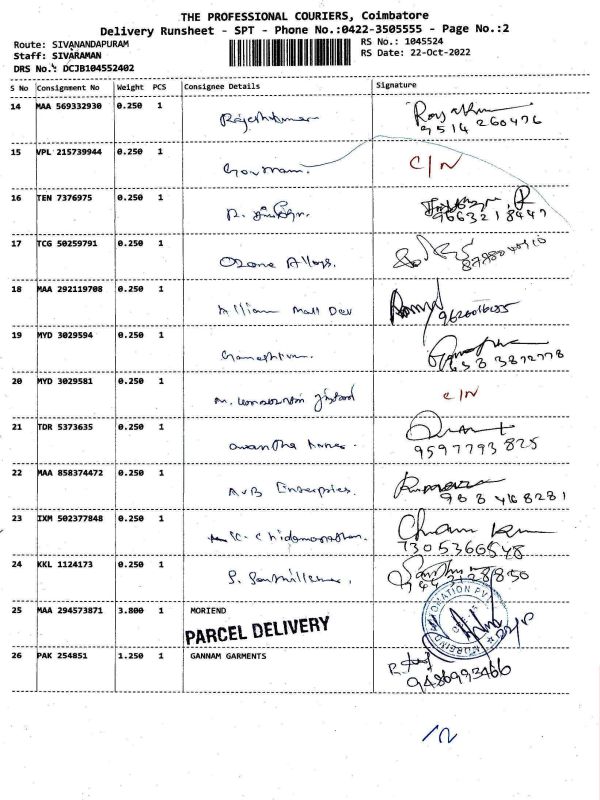 THE PROFESSIONAL COURIERS, Coimbatore
Delivery Runsheet - SPT - Phone No.:0422-3505555 - Page No.:2
Route: SIVANANDAPURAM
RS No.: 1045524
Staff: SIVARAMAN
RS Date: 22-Oct-2022
DRS No.: DCJB104552402
S No Consignment No Weight PCS Consignee Details Signature
14 MAA 569332930 0.250 1 Rajeshkumar
9514 260476
15 VPL 215739944 0.250 1 C/N
16 TEN 7376975 0.250 1
9663218447
17 TCG 50259791 0.250 1 Ozone Alloys.
18 MAA 292119708 0.250 1 William Mall Dev
9626016055
19 MYD 3029594 0.250 1
20 MYD 3029581 0.250 1 C/N
21 TDR 5373635 0.250 1
9597793825
22 MAA 858374472 0.250 1 AVB Enterprises.
988 4168281
23 IXM 502377848 0.250 1 K. Chidamparathan.
7305366548
24 KKL 1124173 0.250 1 S. Senthilkumar.
25 MAA 294573871 3.800 1 MORIEND
PARCEL DELIVERY
26 PAK 254851 1.250 1 GANNAM GARMENTS
9486993466